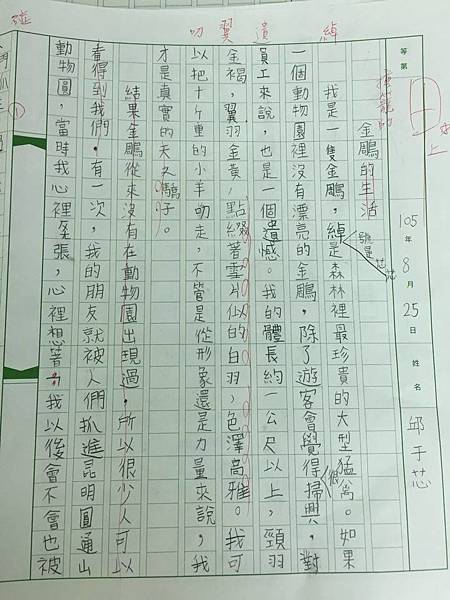 等第
105年8月25日 姓名 邱于芯
上
金鵰的生活
綽 遺 翼 叼
我是一隻金鵰，綽是森林裡最珍貴的大型猛禽。如果
號是芯芯
一個動物園裡沒有漂亮的金鵰，除了遊客會覺得掃興，對
很
員工來說，也是一個遺憾。我的體長約一公尺以上，頸羽
金褐，翼羽金黃，點綴著雪片似的白羽，色澤高雅。我可
以把十ㄍ重的小羊叼走，不管是從形象還是力量來說，我
才是真實的天之驕子。
結果金鵰從來沒有在動物園出現過，所以很少人可以
看得到我們。有一次，我的朋友就被人們抓進昆明圓通山
動物園，當時我心裡緊張，心裡想著我以後會不會也被